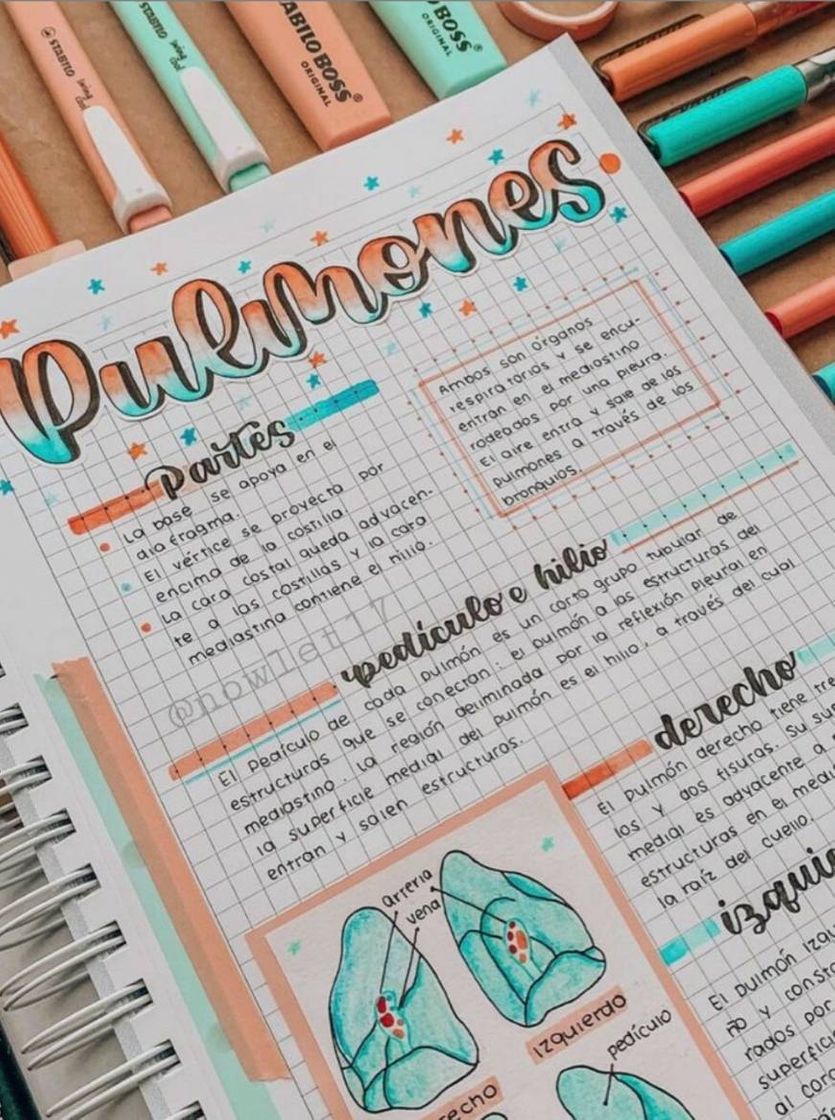 STABILO swing cool
STABILO swing cool
STABILO BOSS
ORIGINAL
BOSS
ORIGINAL
Pulmones
Ambos son órganos
respiratorios y se encu-
entran en el mediastino
rodeados por una pleura.
El aire entra y sale de los
pulmones a través de los
bronquios.
Partes
La base se apoya en el
diafragma.
El vértice se proyecta por
encima de la costilla
La cara costal queda adyacen-
te a las costillas y la cara
mediastina contiene el hilio.
@nowlet17
pedículo e hilio
El pedículo de cada pulmón es un corto grupo tubular de
estructuras que se conectan el pulmón a las estructuras del
mediastino. La región delimitada por la reflexión pleural en
la superficie medial del pulmón es el hilio, a través del cual
entran y salen estructuras.
derecho
El pulmón derecho tiene tre
los y dos fisuras. Su su
medial es adyacente a
estructuras en el med
la raíz del cuello.
izquie
El pulmón izqu
ño y const
rados por
superfici
al cor
arteria
vena
izquierdo
recho
pedículo